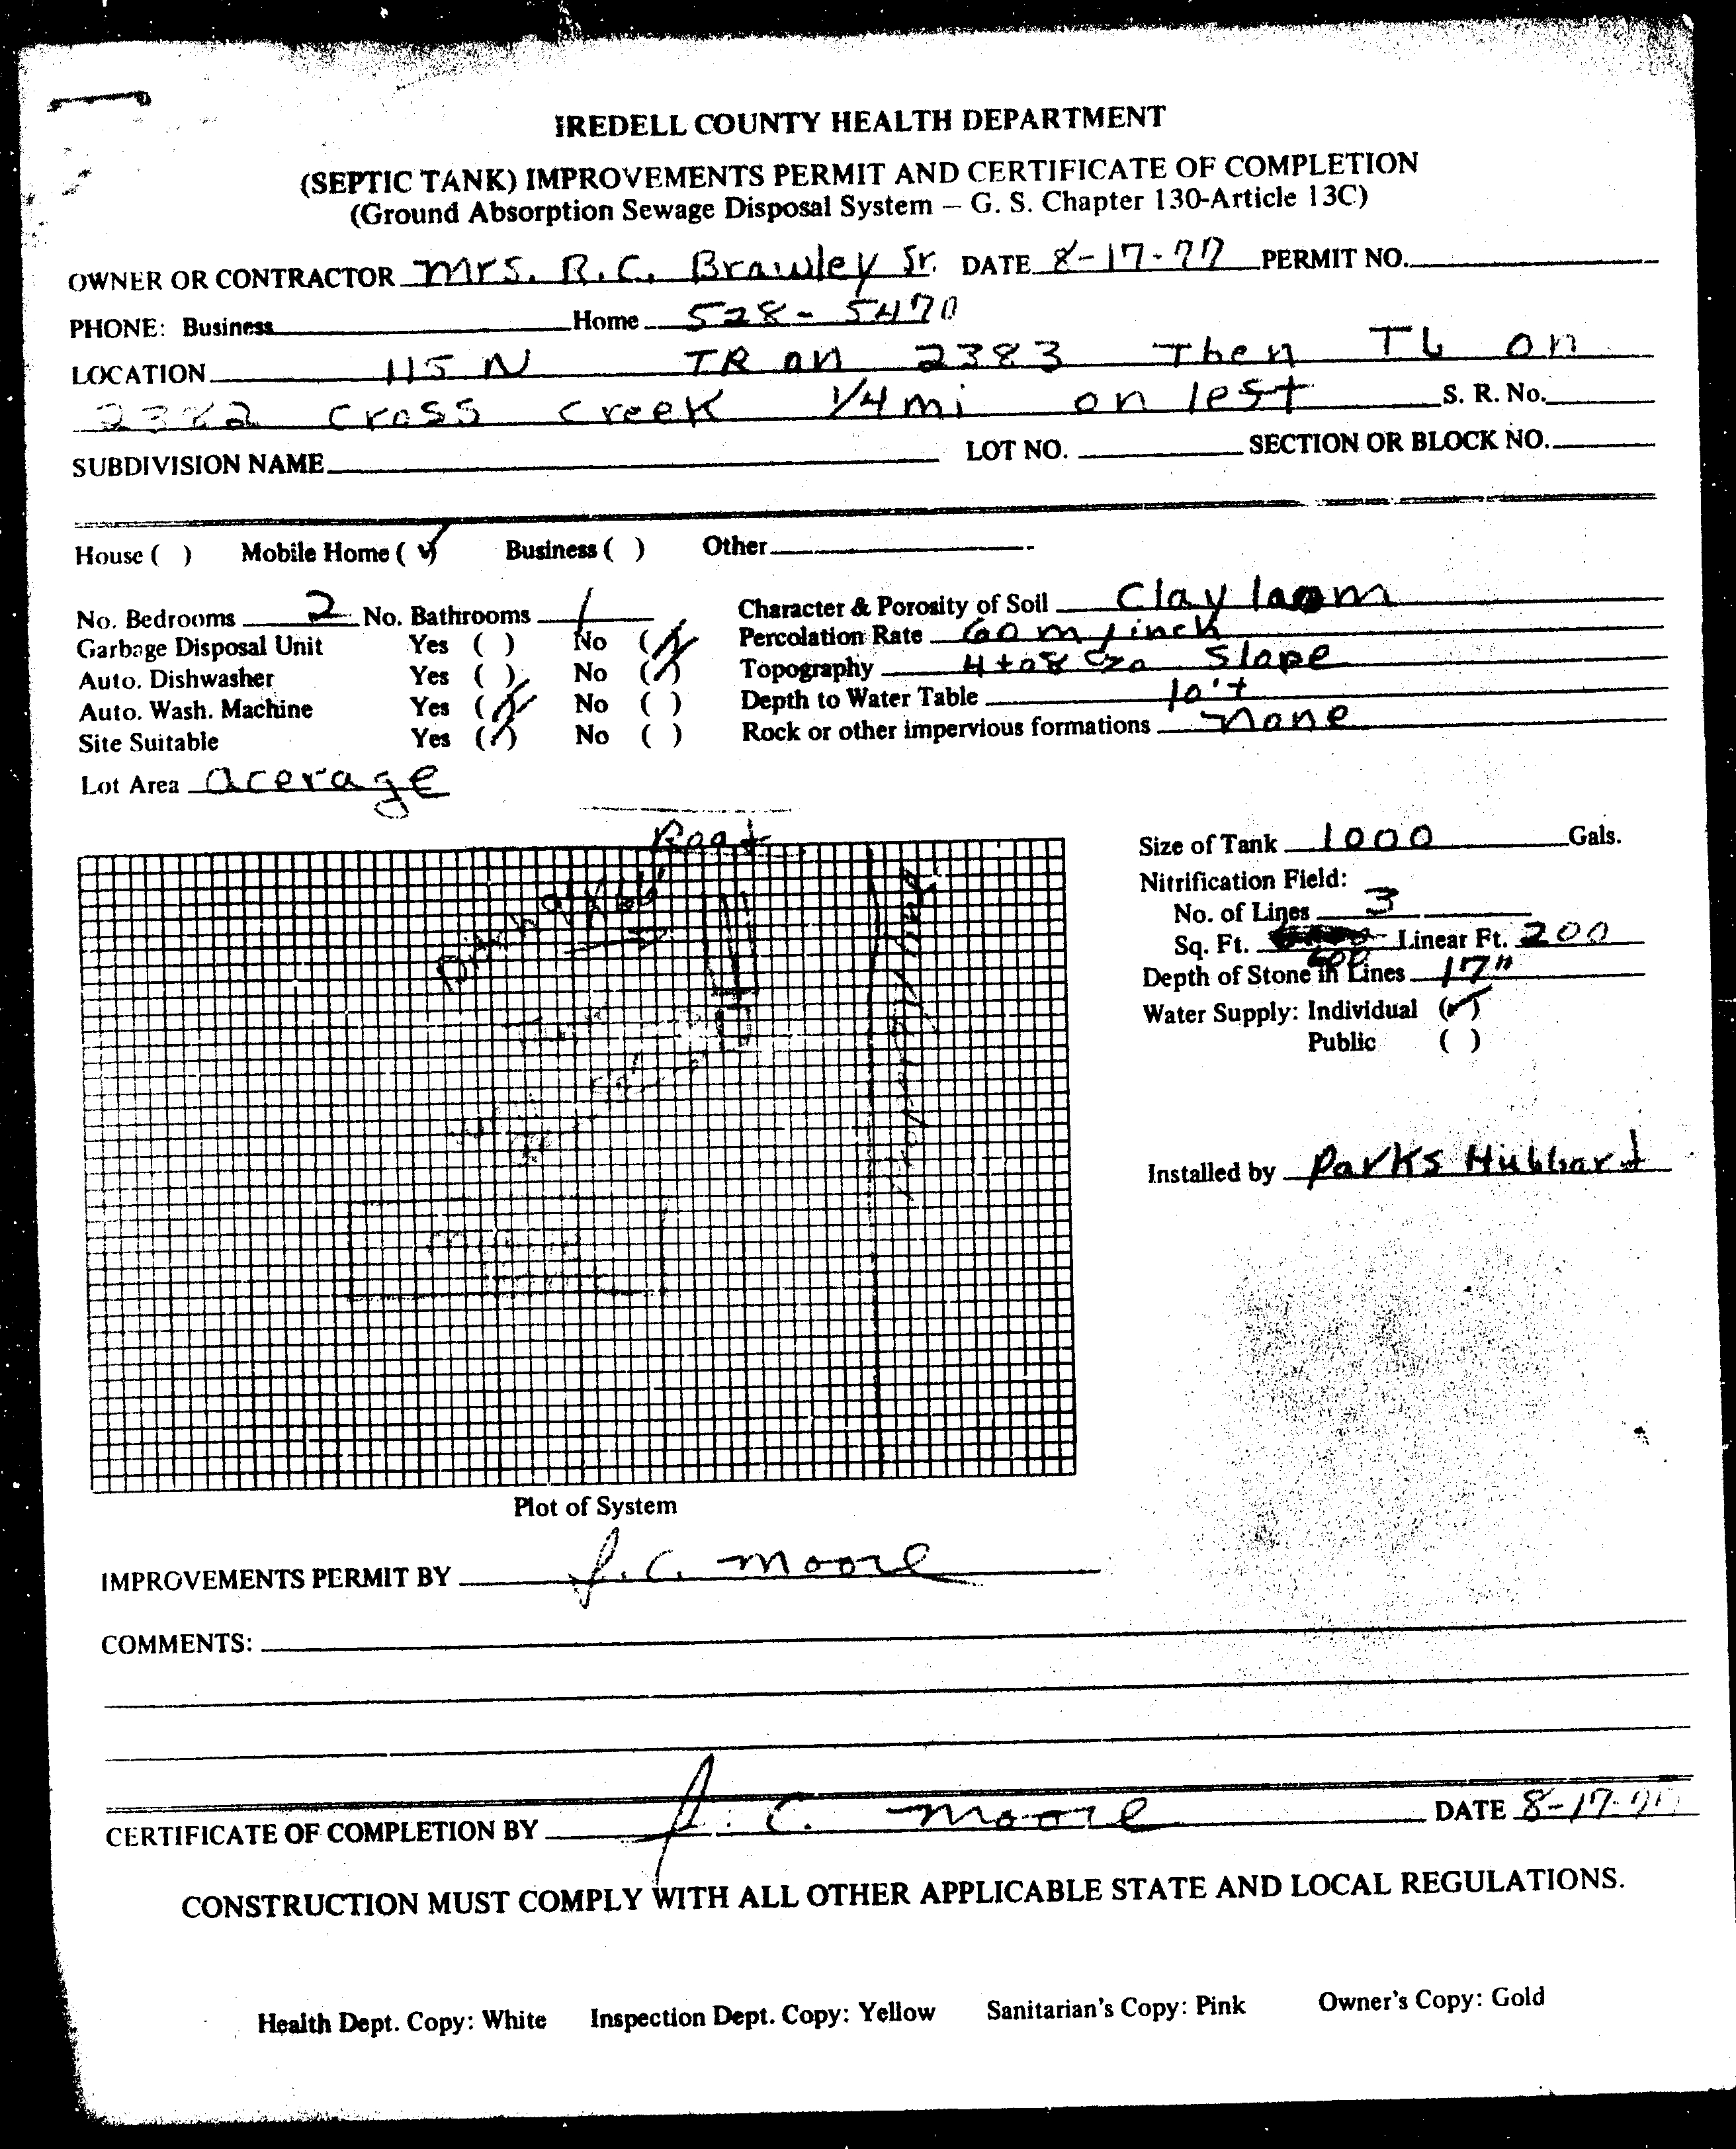 IREDELL COUNTY HEALTH DEPARTMENT
(SEPTIC TANK) IMPROVEMENTS PERMIT AND CERTIFICATE OF COMPLETION
(Ground Absorption Sewage Disposal System – G. S. Chapter 130-Article 13C)
OWNER OR CONTRACTOR Mrs. R.C. Brawley Sr. DATE 8-17-77 PERMIT NO.
PHONE: Business Home 528-5470
LOCATION 115 N TR on 2383 Then TL on
2382 cross creek 1/4 mi on left S. R. No.
SUBDIVISION NAME LOT NO. SECTION OR BLOCK NO.
House ( ) Mobile Home (✓) Business ( ) Other
No. Bedrooms 2 No. Bathrooms 1 Character & Porosity of Soil Clay loam
Garbage Disposal Unit Yes ( ) No (✓) Percolation Rate 60 m/inch
Auto. Dishwasher Yes ( ) No (✓) Topography 4 to 8 % Slope
Auto. Wash. Machine Yes (✓) No ( ) Depth to Water Table 10'+
Site Suitable Yes (✓) No ( ) Rock or other impervious formations none
Lot Area acerage
Road
Size of Tank 1000 Gals.
Nitrification Field:
No. of Lines 3
Sq. Ft. 600 Linear Ft. 200
Depth of Stone in Lines 17"
Water Supply: Individual (✓)
Public ( )
Installed by Parks Hubbard
Plot of System
IMPROVEMENTS PERMIT BY J. C. Moore
COMMENTS:
CERTIFICATE OF COMPLETION BY J. C. Moore DATE 8-17-77
CONSTRUCTION MUST COMPLY WITH ALL OTHER APPLICABLE STATE AND LOCAL REGULATIONS.
Health Dept. Copy: White Inspection Dept. Copy: Yellow Sanitarian's Copy: Pink Owner's Copy: Gold